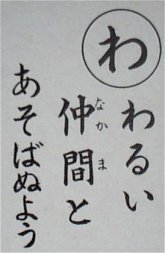 わ
わるい
仲間と
なかま
あそばぬよう